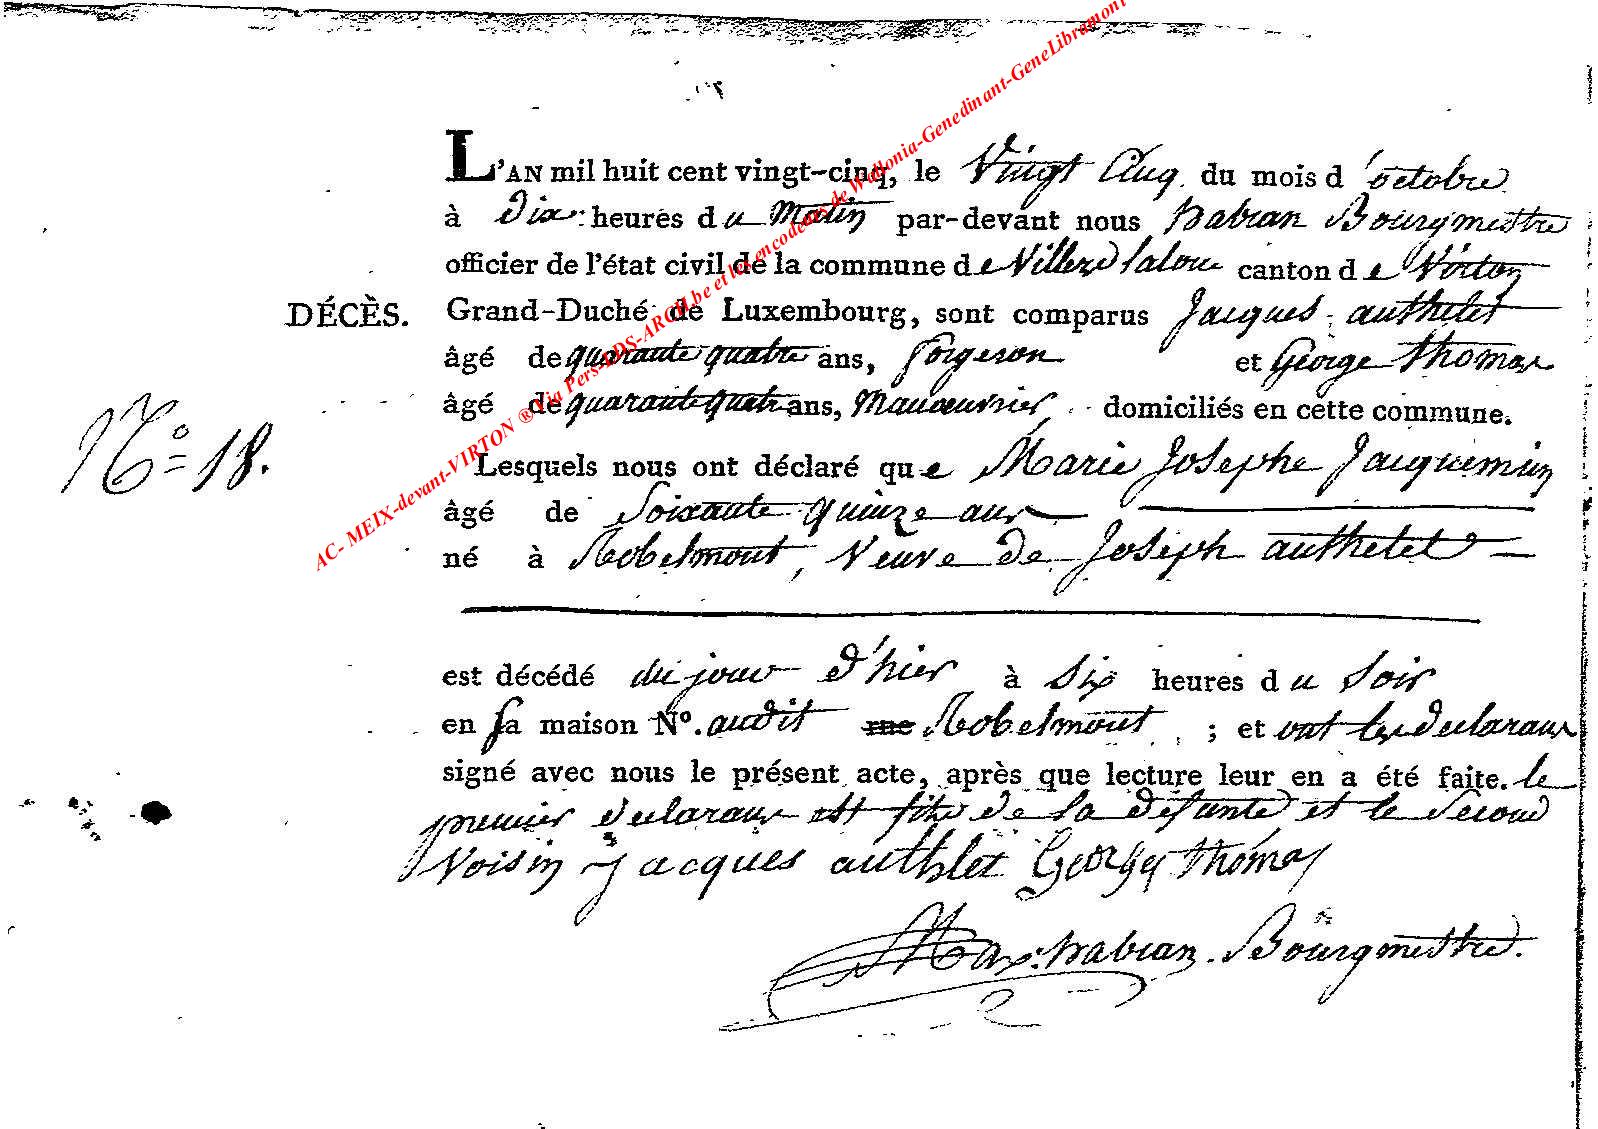 L'AN mil huit cent vingt-cinq, le Vingt Cinq du mois d'octobre
à Dix heures du Matin par-devant nous habran Bourgmestre
officier de l'état civil de la commune de Villers la loue canton de Virton
DÉCÈS. Grand-Duché de Luxembourg, sont comparus Jacques authelet
âgé de quarante quatre ans, forgeron et George thomas
âgé de quarante quatre ans, Manoeuvrier, domiciliés en cette commune.
N° 18. Lesquels nous ont déclaré que Marie Josephe Jacquemin
âgé de Soixante quinze ans
né à Robelmont, Veuve de Joseph authelet
est décédé du jour d'hier à Six heures du Soir
en sa maison N°. audit rue Robelmont ; et ont les declarans
signé avec nous le présent acte, après que lecture leur en a été faite. le
premier declarans est fils de la defunte et le Second
Voisin Jacques authlet Georges thomas
Max: habran. Bourgmestre.
AC- MEIX-devant-VIRTON ® Via Pers-BDS-ARCH.be et les encodeurs de Wallonia-Genedinant-GeneLibramont